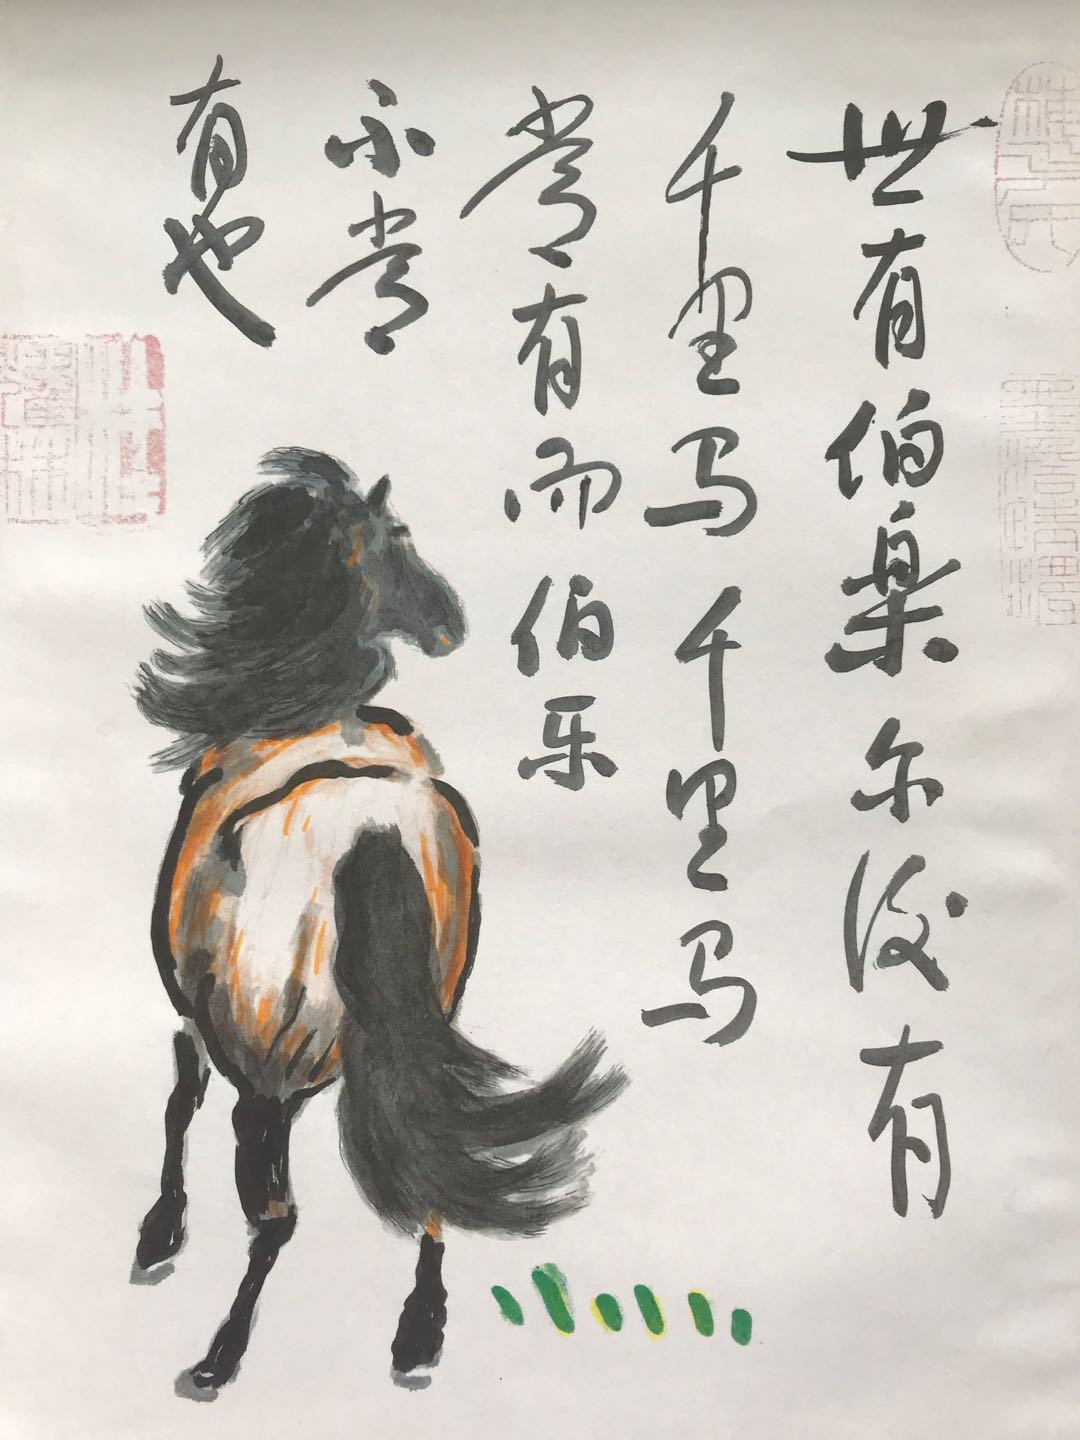 世有伯楽尔后有
千里马千里马
常有而伯乐
不常
有也